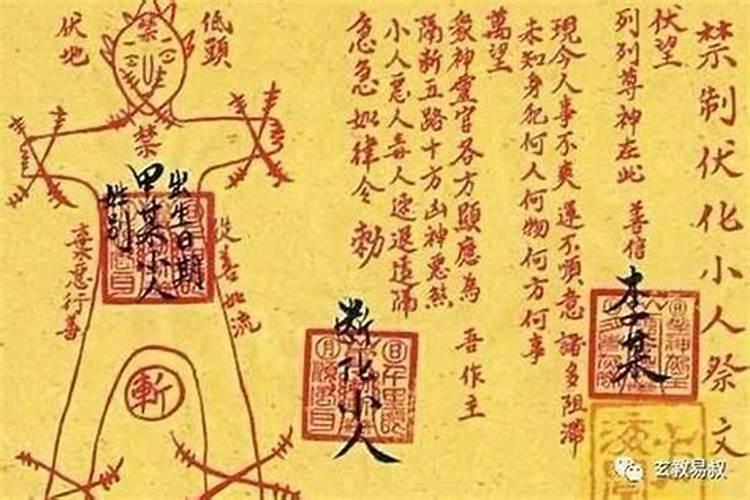 禁制伏化小人祭文
伏望
列列尊神在此 善信
李某
現今人事不爽 運不順意 諸多阻滯
未知身犯何人何物何方何事
萬望
衆神靈官各方顯應為 吾作主
隔斷五路十方凶神惡煞
小人惡人毒人速退遠隔
急急如律令 勅
斷化小人
低頭
禁
伏地
禁
出生日期
甲某小人
姓別
從善如流
棄惡行善
斬
玄教易叔